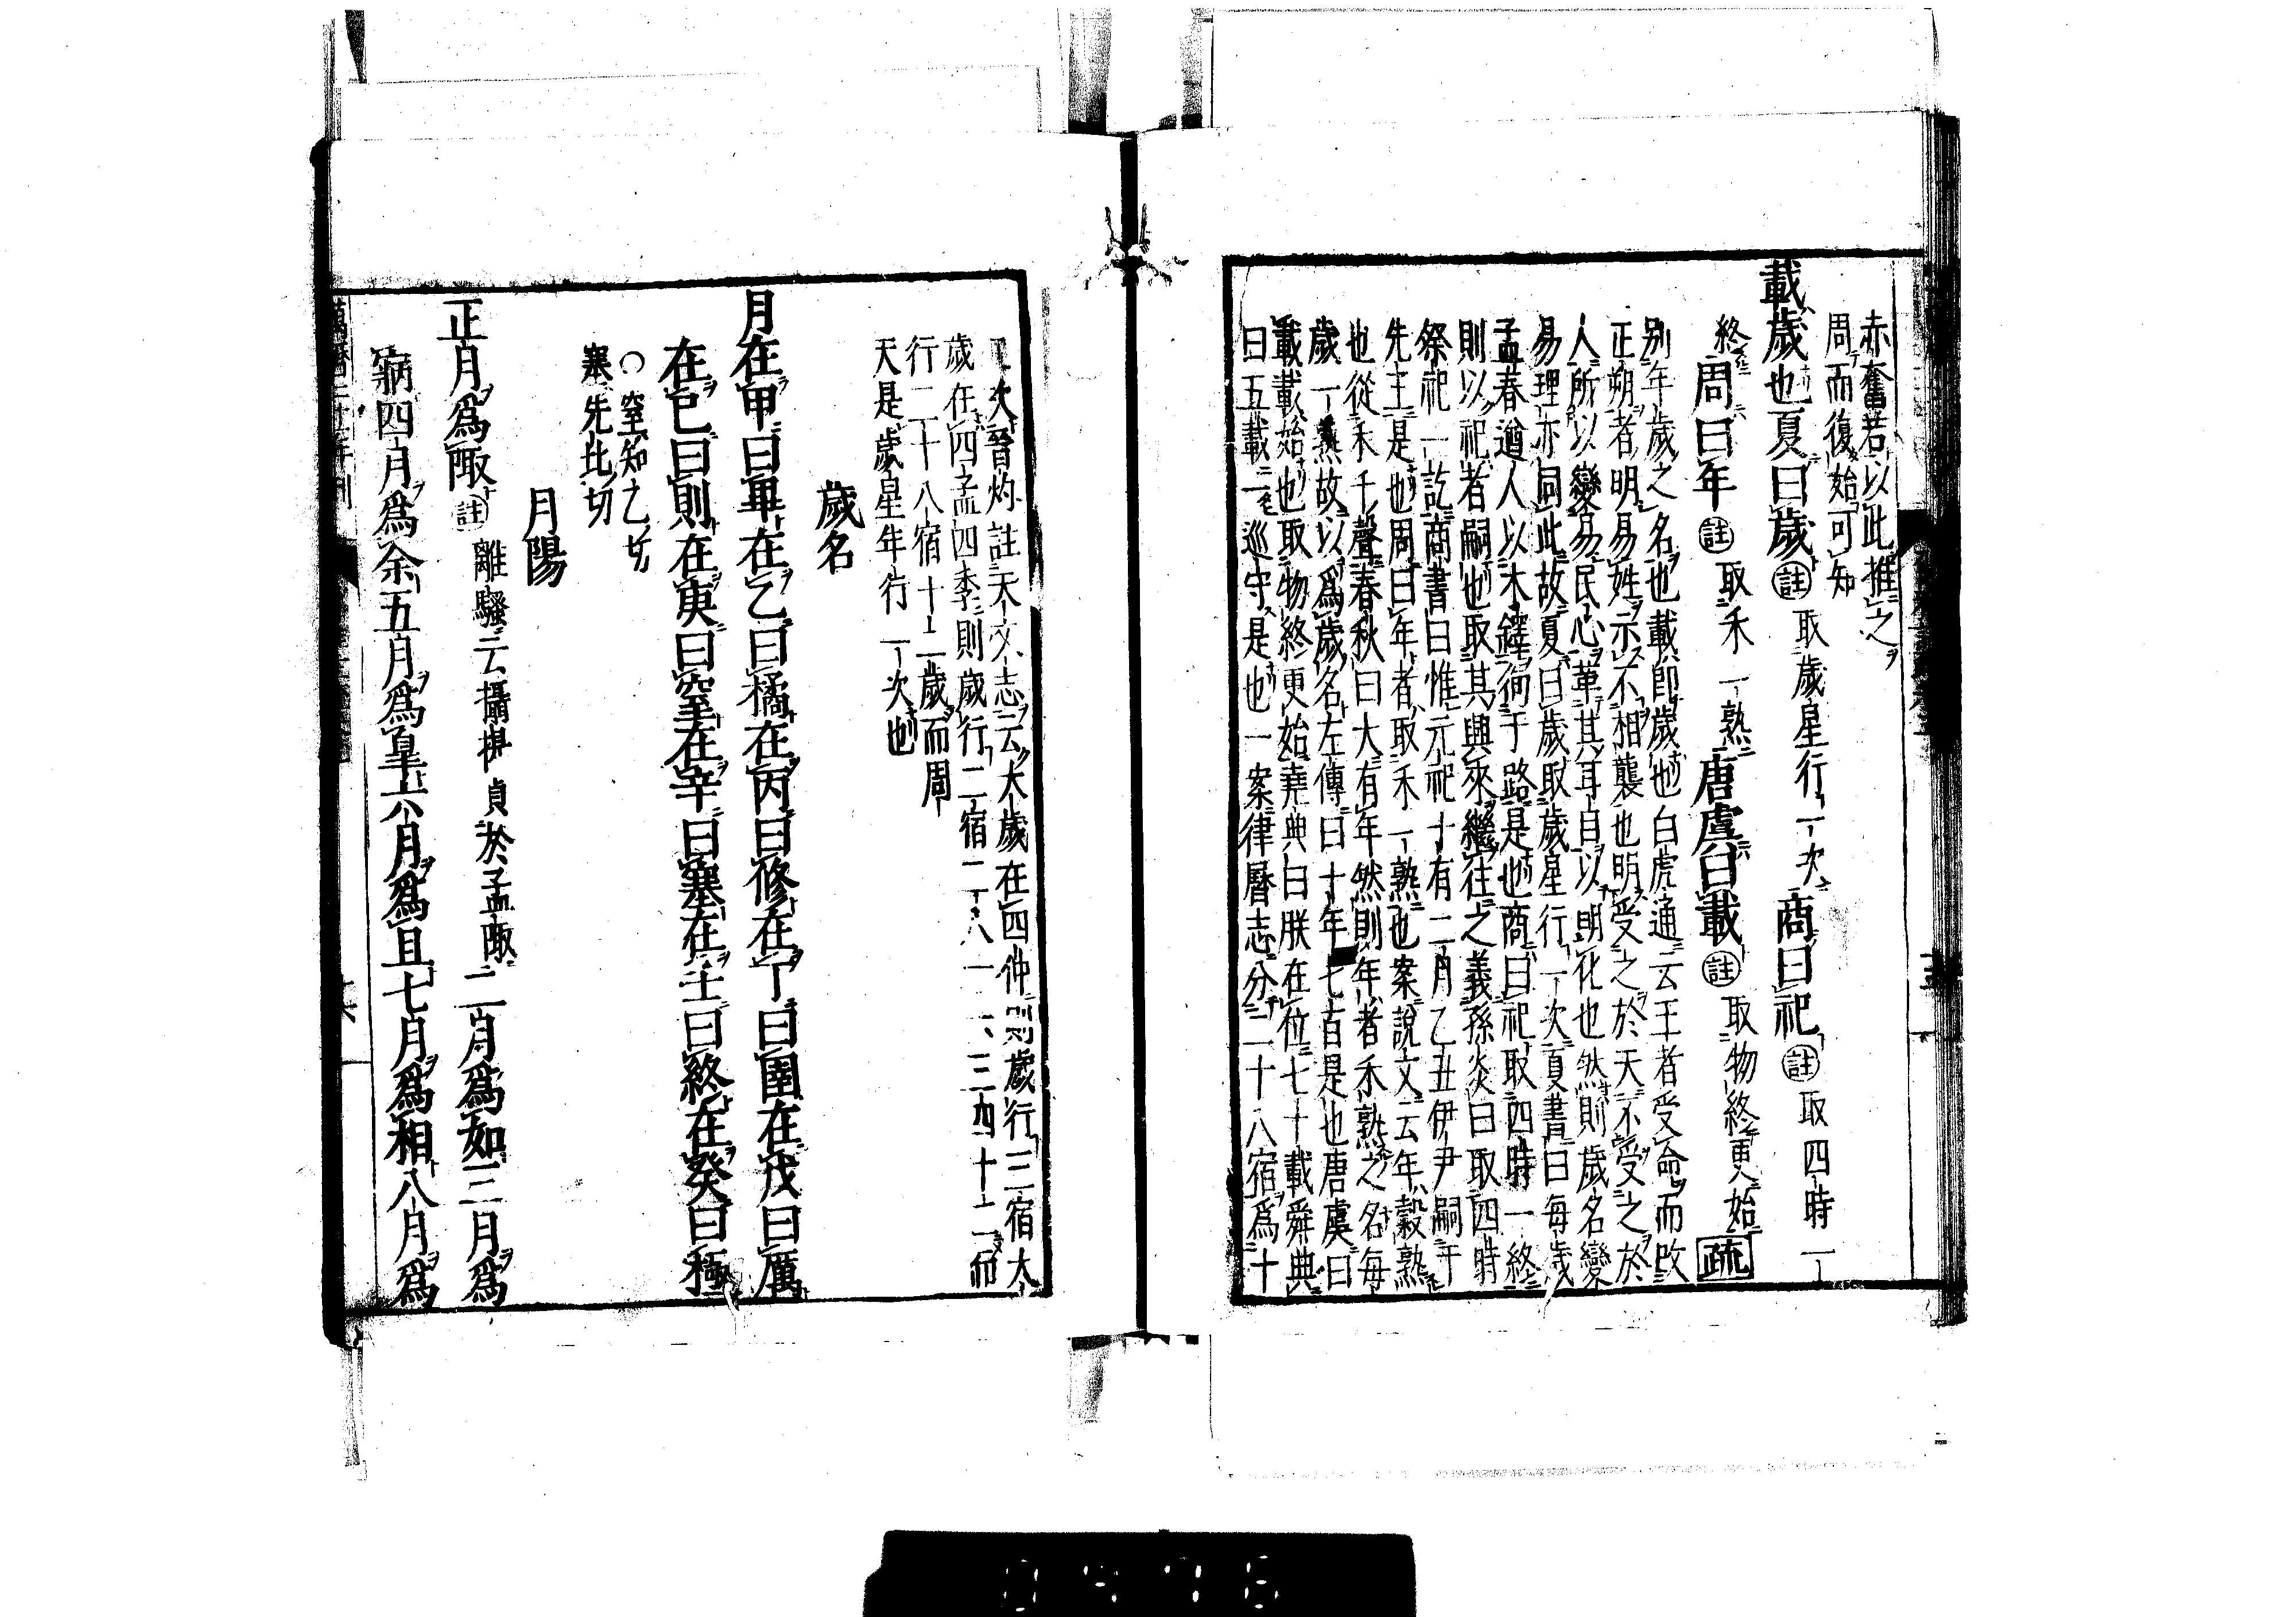 赤奮若以此推之
周而復始可知
載歲也夏曰歲註取歲星行一次商曰祀註取四時一
終周曰年註取禾一熟唐虞曰載註取物終更始疏
別年歲之名也載即歲也白虎通云王者受命而改
正朔者明易姓示不相襲也明受之於天不受之於
人所以變易民心革其耳目以明化也然則歲名變
易理亦同此故夏曰歲取歲星行一次夏書曰每歲
孟春遒人以木鐸徇于路是也商曰祀取四時一終
則以祀者嗣也取其興來繼往之義孫炎曰取四時
祭祀一訖商書曰惟元祀十有二月乙丑伊尹嗣于
先王是也周曰年者取禾一熟也案說文云年穀熟
也從禾千聲春秋曰大有年然則年者禾熟之名每
歲一熟故以爲歲名左傳曰十年七百是也唐虞曰
載載始也取物終更始堯典曰朕在位七十載舜典
曰五載一巡守是也一案律曆志分二十八宿爲十
次晉灼註天文志云太歲在四仲則歲行三宿太
歲在四孟四季則歲行二宿二八一三四十二而
行二十八宿十二歲而周
天是歲星年行一次也
歲名
月在甲曰畢在乙曰橘在丙曰修在丁曰圉在戊曰厲
在巳曰則在庚曰窒在辛曰塞在壬曰終在癸曰極
○窒知乙切
塞先北切
月陽
正月爲陬註離騷云攝提貞於孟陬二月爲如三月爲
寎四月爲余五月爲皐六月爲且七月爲相八月爲